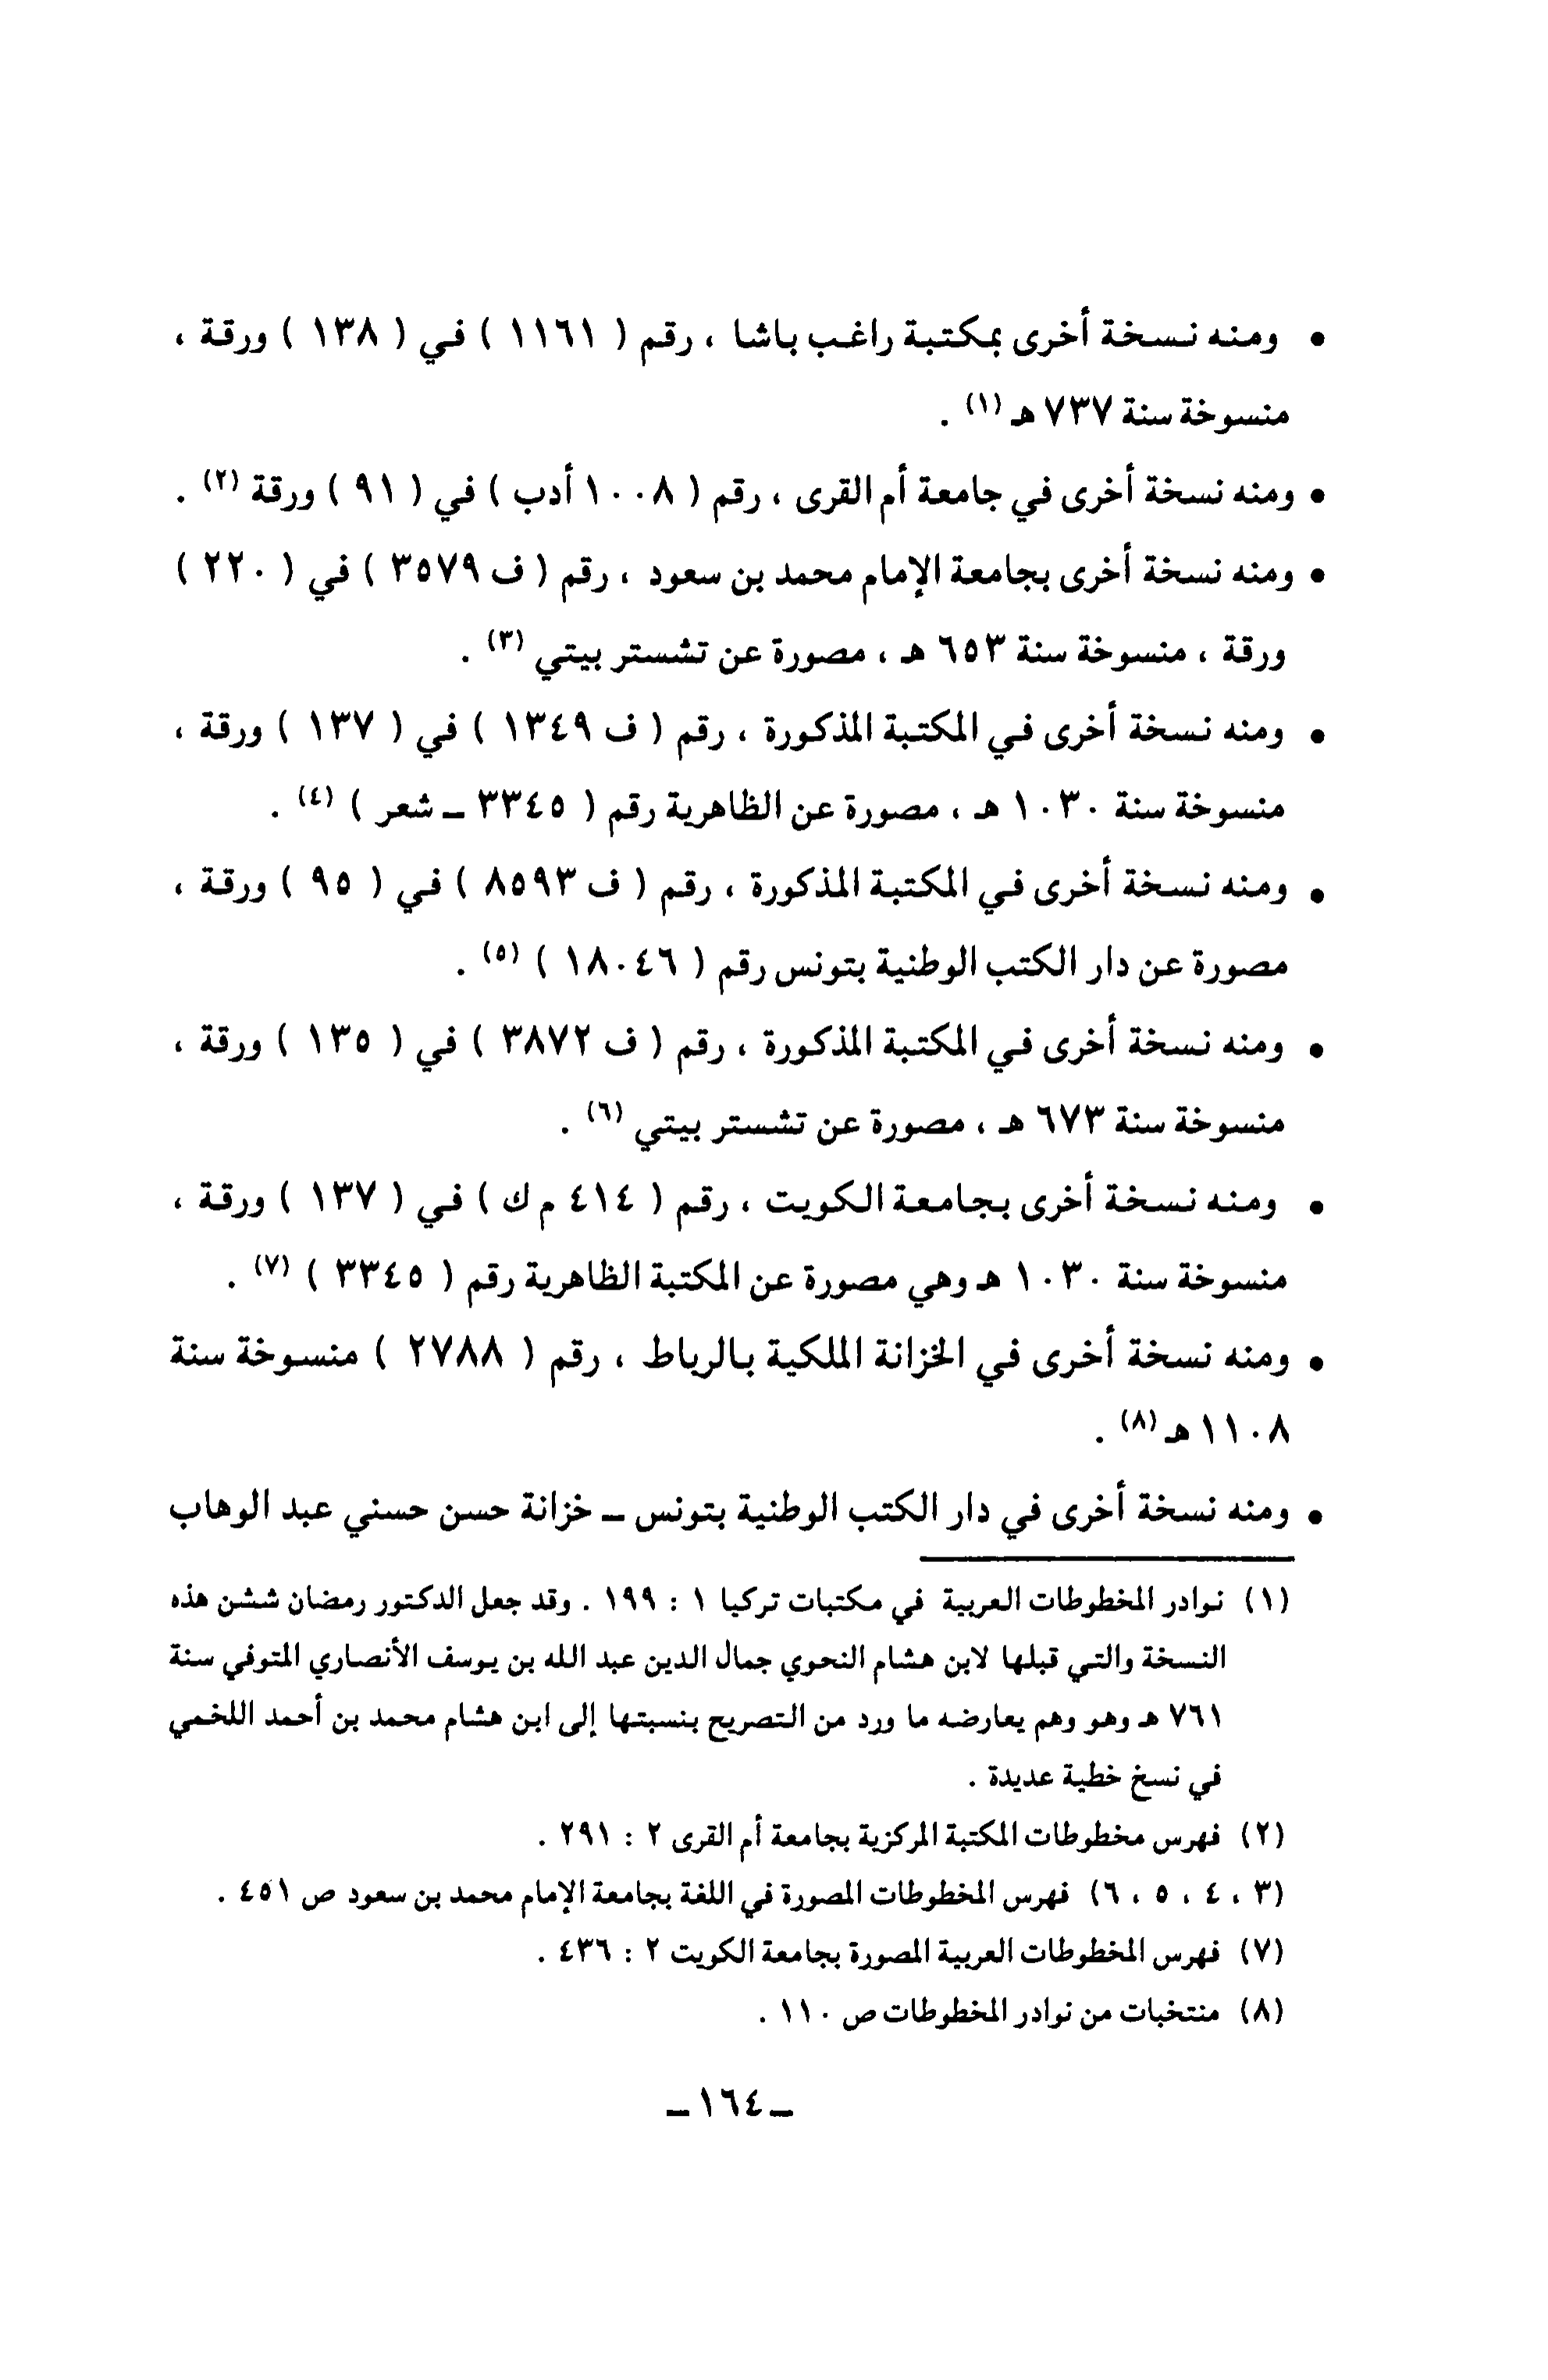 • ومنه نسخة أخرى بمكتبة راغب باشا ، رقم ( ١١٦١ ) في ( ١٣٨ ) ورقة ،
منسوخة سنة ٧٣٧ هـ (١) .
• ومنه نسخة أخرى في جامعة أم القرى ، رقم ( ١٠٠٨ أدب ) في ( ٩١ ) ورقة (٢) .
• ومنه نسخة أخرى بجامعة الإمام محمد بن سعود ، رقم ( ف ٣٥٧٩ ) في ( ٢٢٠ )
ورقة ، منسوخة سنة ٦٥٣ هـ ، مصورة عن تشستر بيتي (٣) .
• ومنه نسخة أخرى في المكتبة المذكورة ، رقم ( ف ١٣٤٩ ) في ( ١٣٧ ) ورقة ،
منسوخة سنة ١٠٣٠ هـ ، مصورة عن الظاهرية رقم ( ٣٣٤٥ – شعر ) (٤) .
• ومنه نسخة أخرى في المكتبة المذكورة ، رقم ( ف ٨٥٩٣ ) في ( ٩٥ ) ورقة ،
مصورة عن دار الكتب الوطنية بتونس رقم ( ١٨٠٤٦ ) (٥) .
• ومنه نسخة أخرى في المكتبة المذكورة ، رقم ( ف ٣٨٧٢ ) في ( ١٣٥ ) ورقة ،
منسوخة سنة ٦٧٣ هـ ، مصورة عن تشستر بيتي (٦) .
• ومنه نسخة أخرى بجامعة الكويت ، رقم ( ٤١٤ م ك ) في ( ١٣٧ ) ورقة ،
منسوخة سنة ١٠٣٠ هـ وهي مصورة عن المكتبة الظاهرية رقم ( ٣٣٤٥ ) (٧) .
• ومنه نسخة أخرى في الخزانة الملكية بالرباط ، رقم ( ٢٧٨٨ ) منسوخة سنة
١١٠٨ هـ (٨) .
• ومنه نسخة أخرى في دار الكتب الوطنية بتونس – خزانة حسن حسني عبد الوهاب
(١) نوادر المخطوطات العربية في مكتبات تركيا ١ : ١٩٩ . وقد جعل الدكتور رمضان ششن هذه
النسخة والتي قبلها لابن هشام النحوي جمال الدين عبد الله بن يوسف الأنصاري المتوفي سنة
٧٦١ هـ وهو وهم يعارضه ما ورد من التصريح بنسبتها إلى ابن هشام محمد بن أحمد اللخمي
في نسخ خطية عديدة .
(٢) فهرس مخطوطات المكتبة المركزية بجامعة أم القرى ٢ : ٢٩١ .
(٣ ، ٤ ، ٥ ، ٦) فهرس المخطوطات المصورة في اللغة بجامعة الإمام محمد بن سعود ص ٤٥١ .
(٧) فهرس المخطوطات العربية المصورة بجامعة الكويت ٢ : ٤٣٦ .
(٨) منتخبات من نوادر المخطوطات ص ١١٠ .
– ١٦٤ –